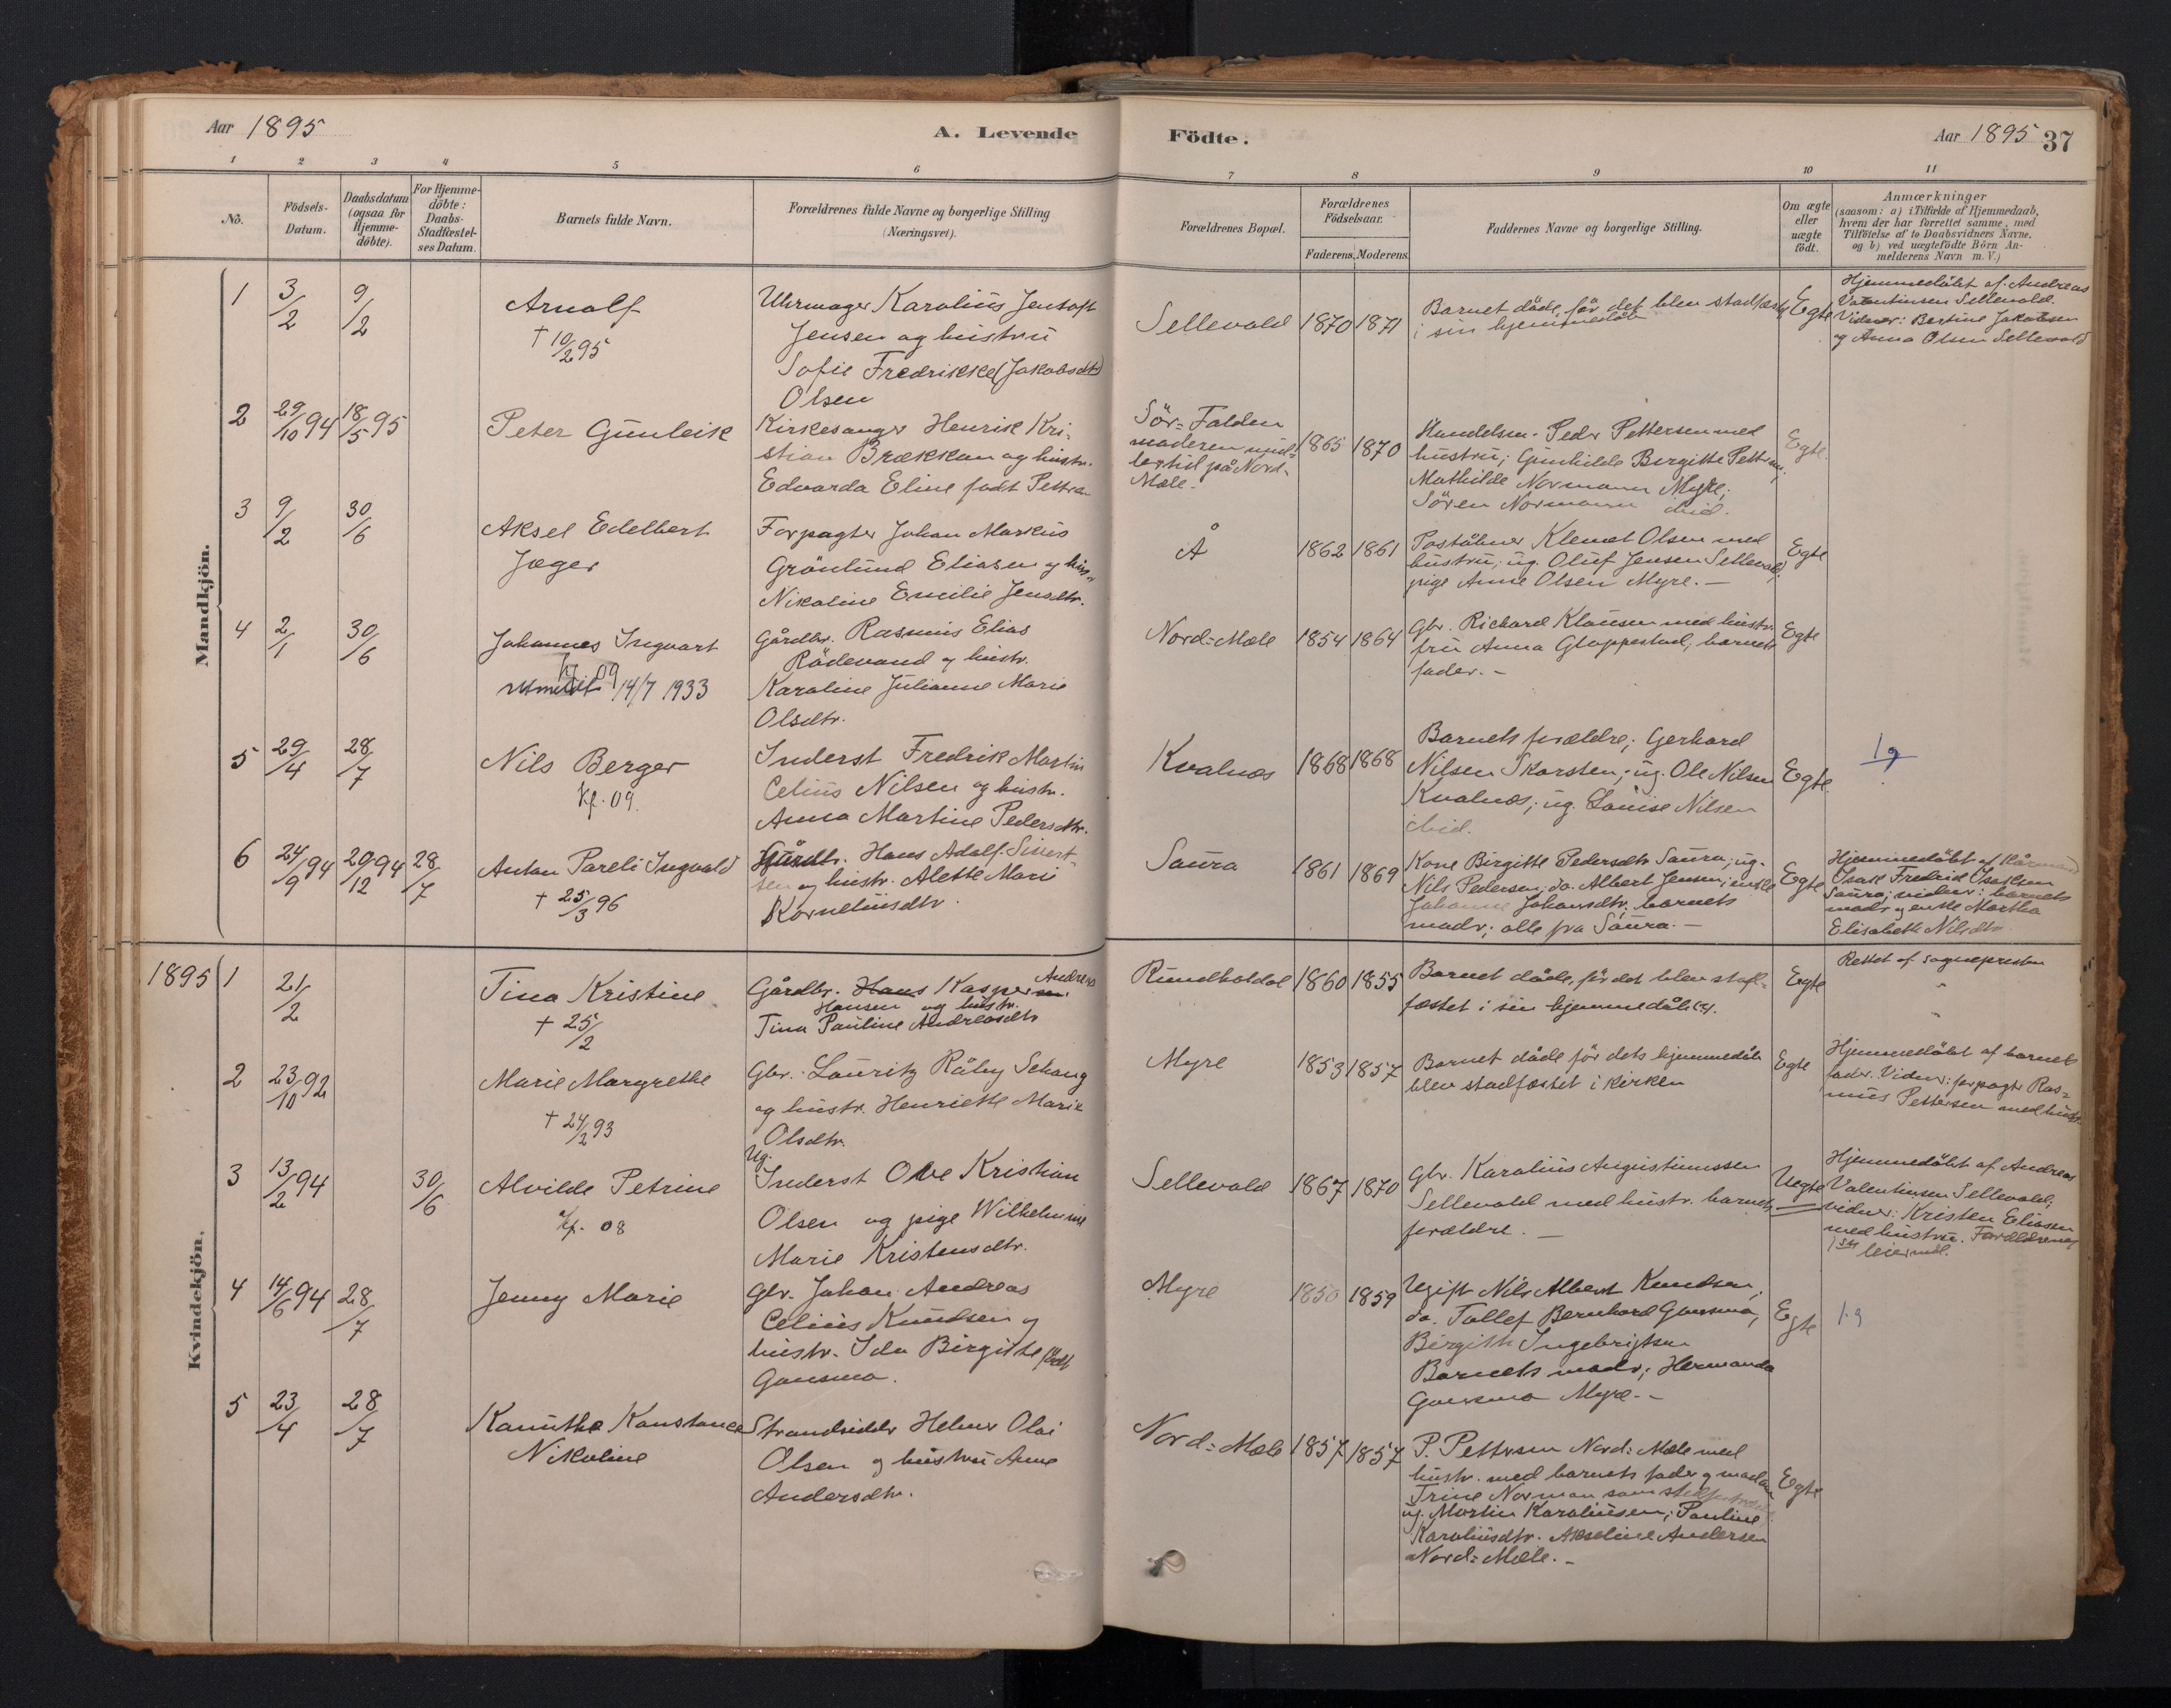 Aar 1895
A. Levende
Födte.
Aar 1895 37
1 2 3 4 5 6 7 8 9 10 11
No.
Födsels-
Datum.
Daabsdatum
(ogsaa for
Hjemme-
döbte).
For Hjemme-
döbte:
Daabs-
Stadfæstel-
ses Datum.
Barnets fulde Navn.
Forældrenes fulde Navne og borgerlige Stilling
(Næringsvei).
Forældrenes Bopæl.
Forældrenes
Födselsaar.
Faderens. Moderens.
Faddernes Navne og borgerlige Stilling.
Om ægte
eller
uægte
födt.
Anmærkninger
(saasom: a) i Tilfælde af Hjemmedaab,
hvem der har forrettet samme, med
Tilföielse af to Daabsvidners Navne,
og b) ved uægtefödte Börn An-
melderens Navn m. V.)
Mandkjön.
1 3/2 9/2
Arnolf
† 10/2 95
Uhrmager Karolius Jentoft
Jensen og hustru
Sofie Fredrikke (Jakobsdtr)
Olsen
Sellevold 1870 1871
Barnet døde, før det blev stadfæstet
i sin hjemmedåb
Egte
Hjemmedöbt af Andreas
Valentinsen Sellevold.
Vidner: Bertine Jakobsen
og Anna Olsen Sellevold
2 29/10 94 18/5 95
Peter Gunleik
Kirkesanger Henrik Kri-
stian Brækkan og hustr.
Edvarda Eline født Petters
Sör-Falden
moderen mid-
lertid på Nord-
Mæle.
1865 1870
Handelsm. Peder Pettersen med
hustru; Gunhilde Birgitte Petters.;
Mathilde Normann Myre;
Sören Normann ibid.
Egte.
3 9/2 30/6
Aksel Edelbert
Jæger
Forpagter Johan Markus
Grönlund Eliasen og hus.
Nikoline Emilie Jensdtr.
Å 1862 1861
Poståbner Klemet Olsen med
hustru; ug. Oluf Jensen Sellevold;
pige Anne Olsen Myre. —
Egte
4 2/1 30/6
Johannes Ingvart
kf 09
utmeldt 14/7 1933
Gårdbr. Rasmus Elias
Rödevand og hustr.
Karoline Julianne Marie
Olsdtr.
Nord-Mæle 1854 1864
Gbr. Richard Klausen med hustr.
fru Anna Gloppestad; barnets
fader. —
Egte
5 29/4 28/7
Nils Berger
kf. 09.
Inderst Fredrik Martin
Celius Nilsen og hustr.
Anna Martine Pedersdtr.
Kvalnæs 1868 1868
Barnets forældre; Gerhard
Nilsen Skarsten; ug. Ole Nilsen
Kvalnæs; ug. Louise Nilsen
ibid.
Egte.
6 24/9 94 29/12 94 28/7
Anton Pareli Ingvald
† 25/3 96
Gårdbr. Hans Adolf Sivert-
sen og hustr. Alette Marie
Korneliusdtr.
Saura 1861 1869
Kone Birgitte Pedersdtr Saura; ug.
Nils Pedersen; do. Albert Jensen; enke
Johanne Johansdtr; barnets
moder; alle fra Saura. —
Egte
Hjemmedöbt af
Isak Fredrid Isaksen
Saura; vidner: barnets
moder og enke Martha
Elisabeth Nilsdtr.
Kvindekjön.
1895 1 21/2
Tina Kristine
† 25/2
Gårdbr. Hans Kasper Andreas
Hansen og hustr.
Tina Pauline Andreasdtr
Rundhaldal 1860 1855
Barnet døde, før det blev stad-
fæstet i sin hjemmedåb (?).
Egte
Rettet af sognepresten
2 23/10 92
Marie Margrethe
† 24/2 93
Gbr. Lauritz Råby Sehaug
og hustr. Henriette Marie
Olsdtr.
Myre 1853 1857
Barnet døde før dets hjemmedåb
blev stadfæstet i kirken
Egte
Hjemmedöbt af barnets
fader. Vidner: forpagter Ras-
mus Pettersen med hustr.
3 13/2 94 30/6
Alvilde Petrine
kf. 08
Ug.
Inderst Ole Kristian
Olsen og pige Wilhelmine
Marie Kristensdtr.
Sellevold 1867 1870
Gbr. Karolius Augustinussen
Sellevold med hustr. barnets
forældre. —
Uegte
Hjemmedöbt af Andreas
Valentinsen Sellevold;
vidner: Kristen Eliasen
med hustru. Forældrenes
1ste leiermål.
4 14/6 94 28/7
Jenny Marie
Gbr. Johan Andreas
Celius Knudsen og
hustr. Ida Birgitte født
Gausmo.
Myre 1850 1859
Ugift Nils Albert Knudsen;
do. Tollef Bernhard Gausmo,
Birgith Ingebrigtsen
Barnets moder; Hermanda
Gausmo Myre. —
Egte
5 23/4 28/7
Kanuthe Konstance
Nikoline
Strandsidder Helmer Olai
Olsen og hustru Anne
Andersdtr.
Nord-Mæle 1857 1857
P. Pettersen Nord-Mæle med
hustr. med barnets fader og madam
Trine Norman som
ug. Martin Karoliusen; Pauline
Karoliusdtr. Akseline Andersen
Nord-Mæle. —
Egte